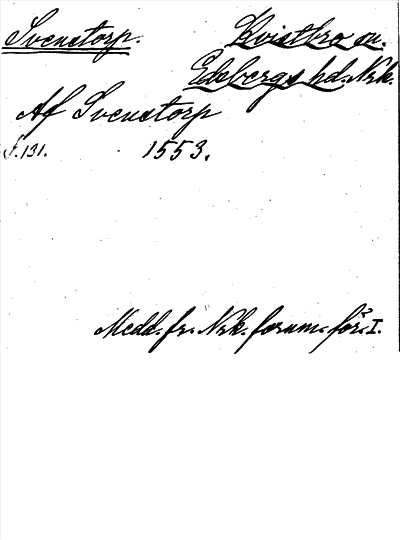 Svenstorp.
Kvistbro sn.
Edsbergs hd. Nrk.
Af Svenstorp
s. 131. 1553.
Medd. fr. Nrk. fornm. för. I.